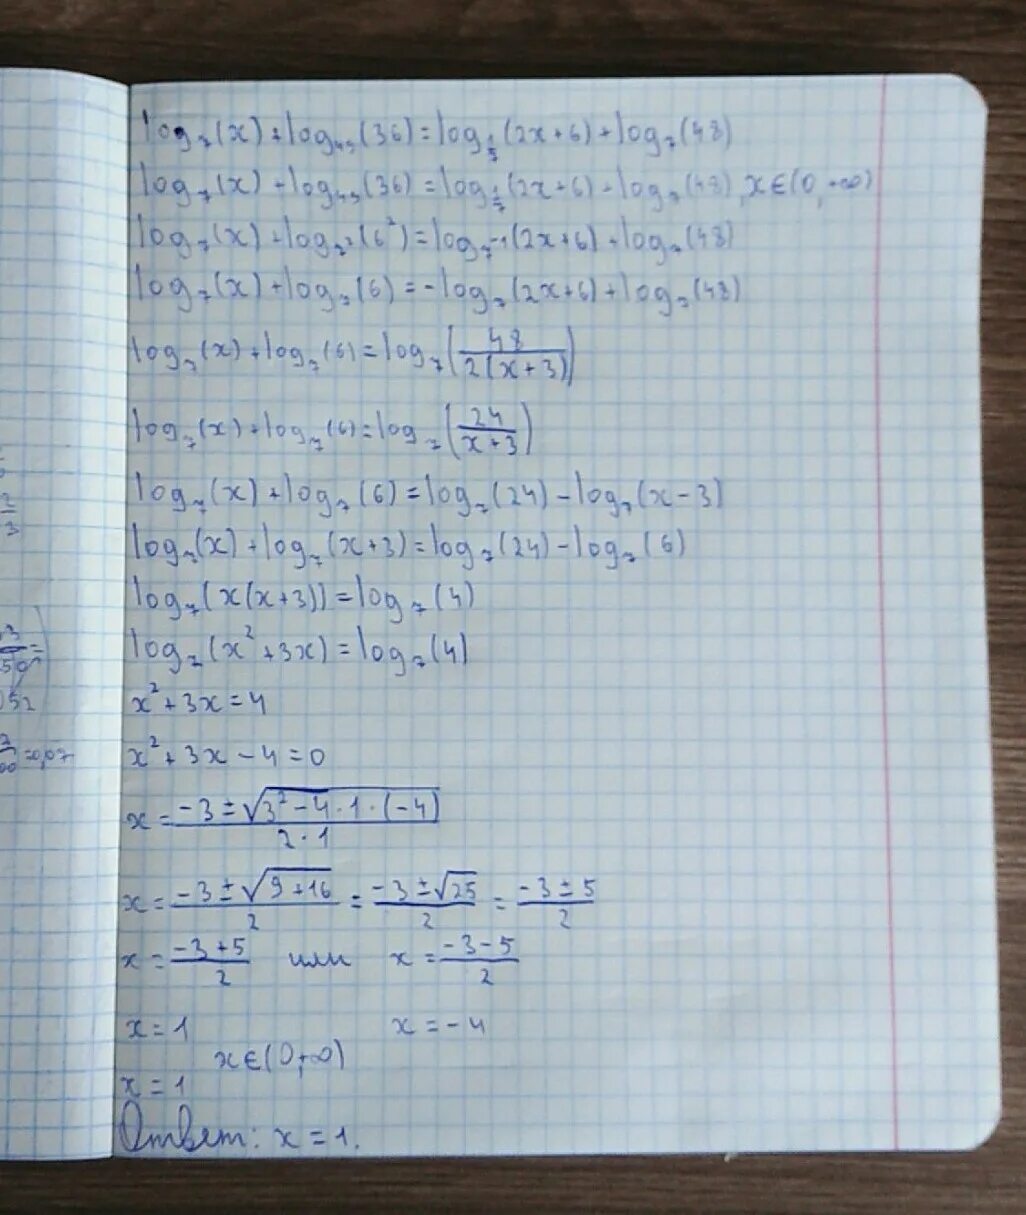 log₇(x)+log₄₉(36)=log_{1/5}(2x+6)+log₇(48)
log₇(x)+log₄₉(36)=log_{1/7}(2x+6)+log₇(48), x∈(0,+∞)
log₇(x)+log_{7²}(6²)=log_{7⁻¹}(2x+6)+log₇(48)
log₇(x)+log₇(6)=-log₇(2x+6)+log₇(48)
log₇(x)+log₇(6)=log₇(48/(2(x+3)))
log₇(x)+log₇(6)=log₇(24/(x+3))
log₇(x)+log₇(6)=log₇(24)-log₇(x-3)
log₇(x)+log₇(x+3)=log₇(24)-log₇(6)
log₇(x(x+3))=log₇(4)
log₇(x²+3x)=log₇(4)
x²+3x=4
x²+3x-4=0
x=(-3±√(3²-4·1·(-4)))/(2·1)
x=(-3±√(9+16))/2=(-3±√25)/2=(-3±5)/2
x=(-3+5)/2 или x=(-3-5)/2
x=1 x=-4
x∈(0,+∞)
x=1
Ответ: x=1.
2
3
=0,07